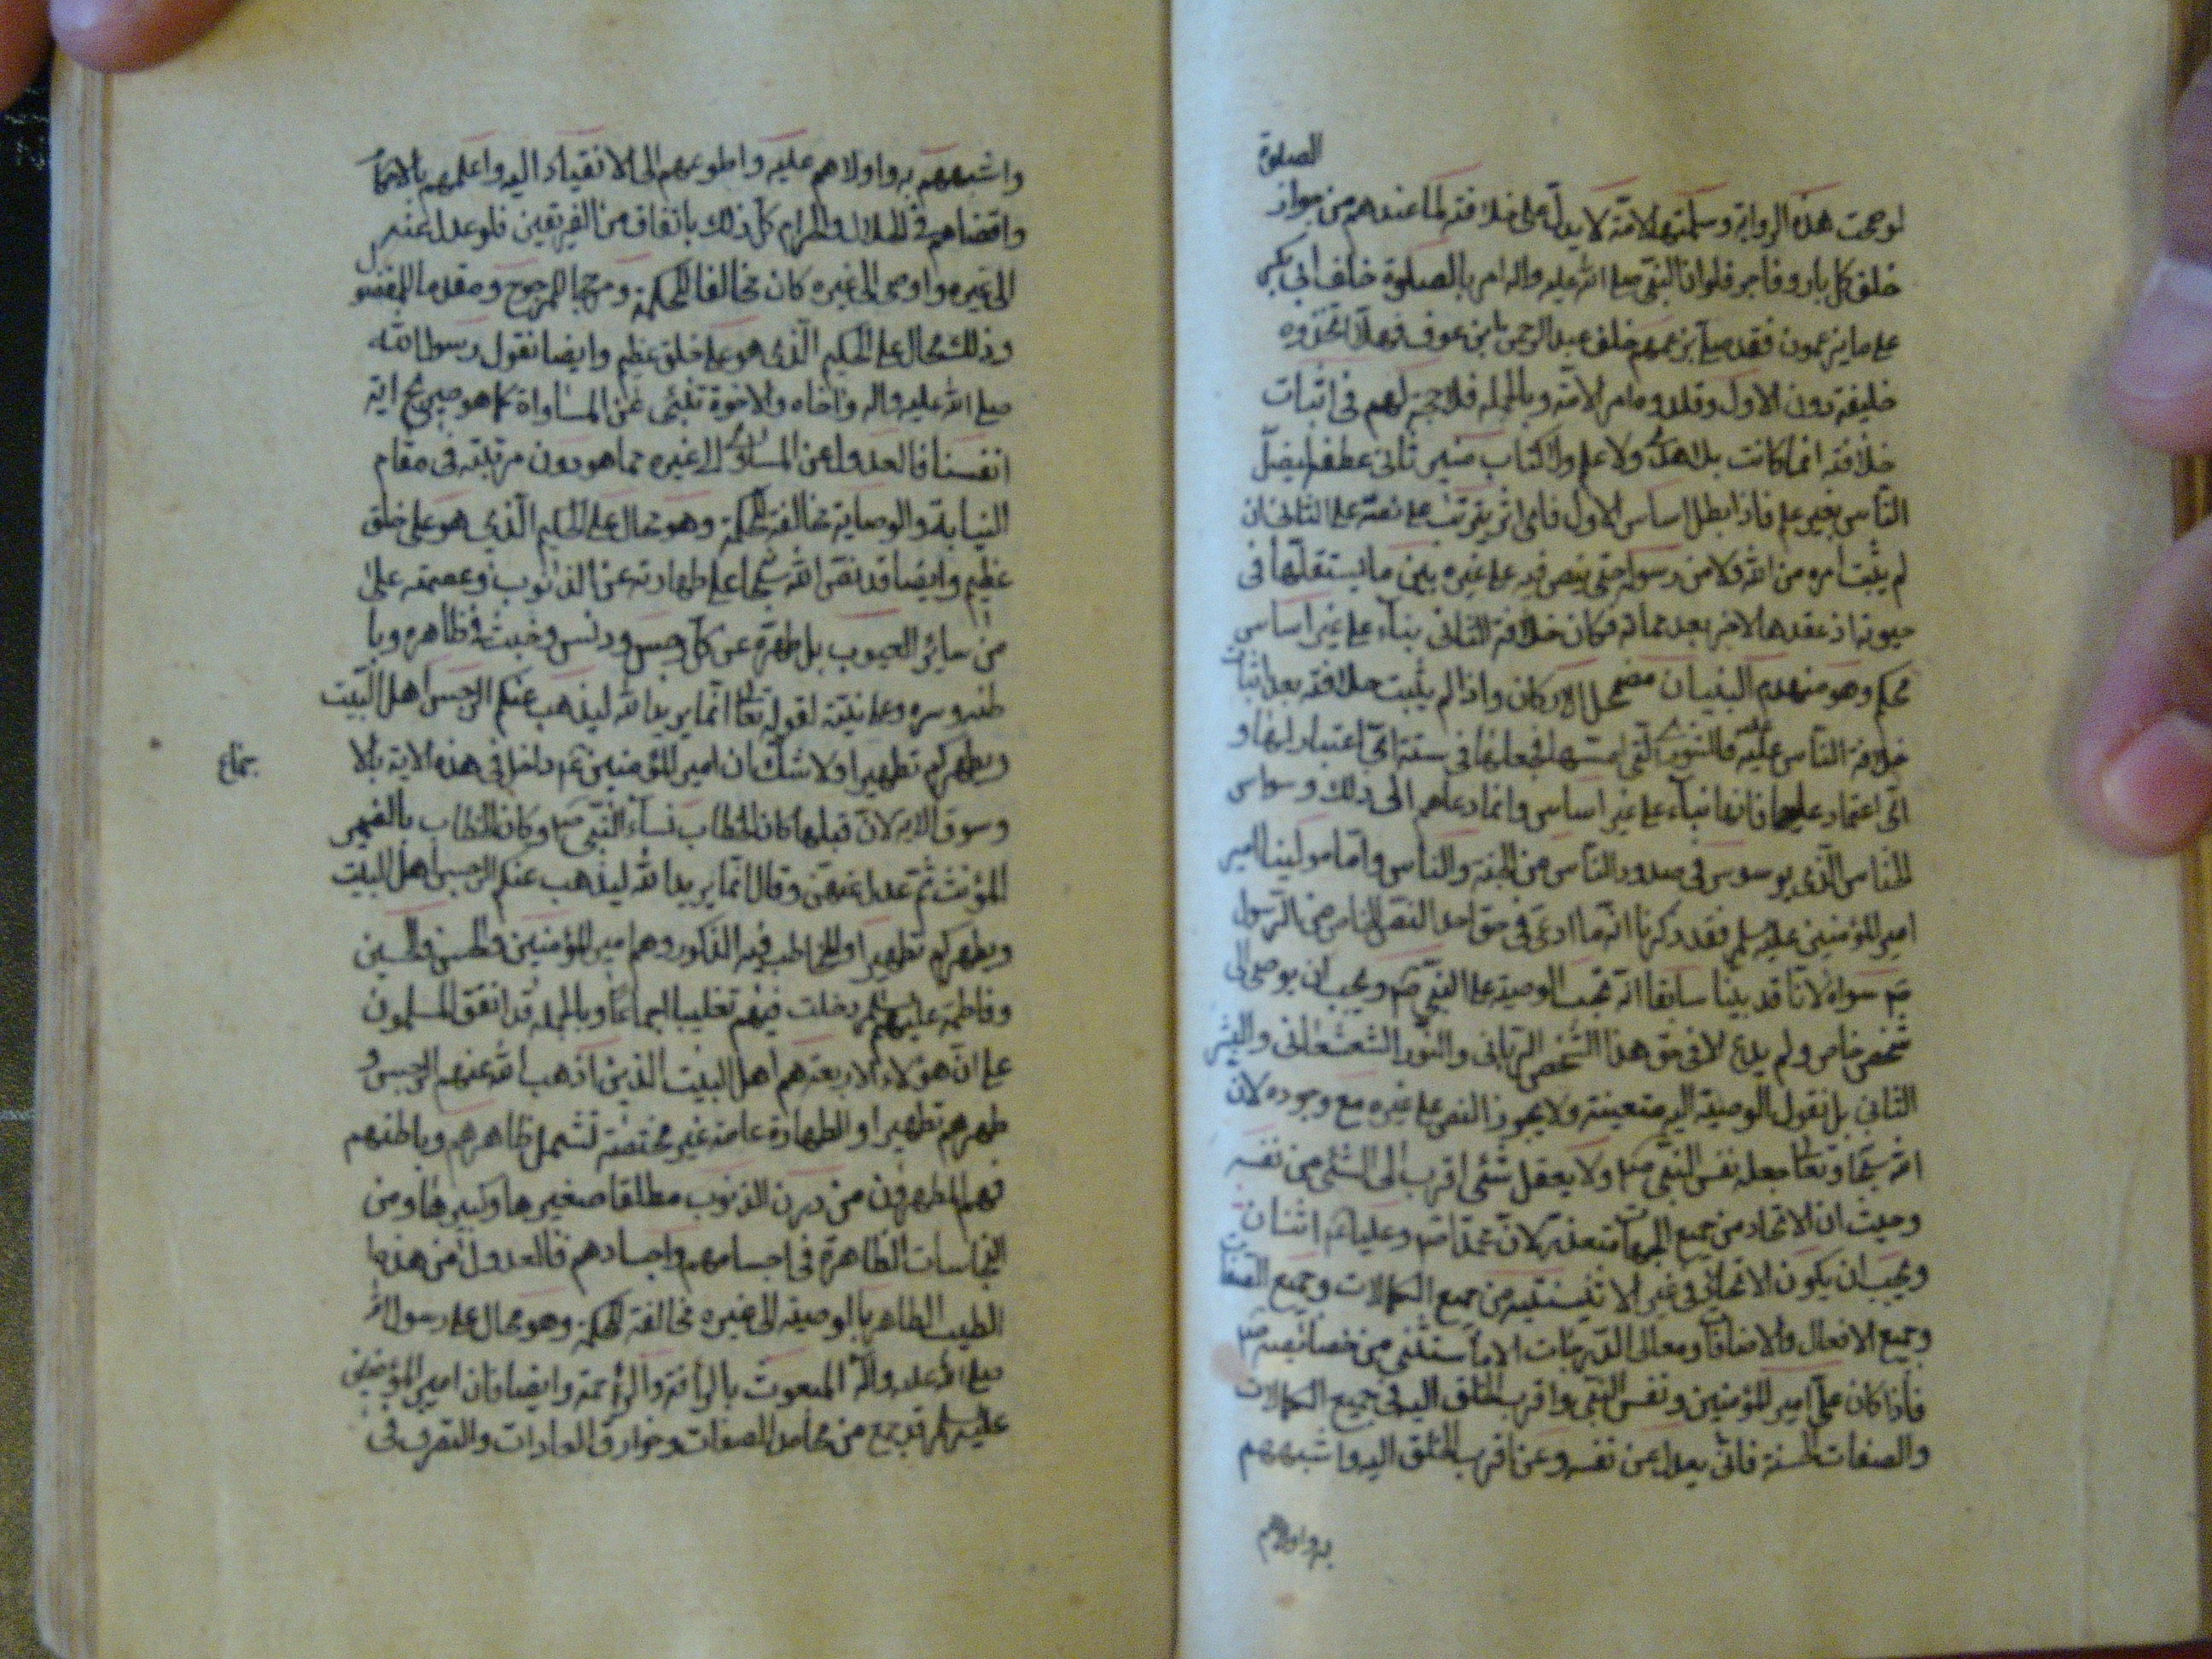 الصلوة
لو صحت هذه الرواية وسلمتها الامة لا يدل على خلافته لما عندهم من جواز
خلف كل بار وفاجر فلو ان النبي صلى الله عليه واله امر بالصلوة خلف ابي بكر
على ما يزعمون فقد صلى بزعمهم خلف عبد الرحمن ابن عوف فهلا اتخذوه
خليفة دون الاول وقلدوه امر الامة وبالجملة فلا حجة لهم في اثبات
خلافته انما كانت بلا هدى ولا علم ولا كتاب منير ثاني عطفه ليضل
الناس بغير علم فاذا بطل اساس الاول فاي اثر يترتب على نصه على الثاني ان
لم يثبت امره من الله ولا من رسوله حتى ينص فيه على غيره بينما يستقيلها في
حيوته اذ عقدها لاخر بعد مماته فكان خلافة الثاني بناء على غير اساس
محكم وهو منهدم البنيان مضمحل الاركان واذا لم يثبت خلافته بعد اثبات
خلافة الناس عليه فالشورى التي اسسها فجعلها في ستة اي اعتبار لها و
اي اعتماد عليها فانها بناء على غير اساس وانما دعاهم الى ذلك وسواس
الخناس الذي يوسوس في صدور الناس من الجنة والناس واما مولينا امير
امير المؤمنين عليه السلم فقد ذكرنا انه ما ادعى في حق احد النص الخاص من الرسول
ص سواه لانا قد بينا سابقا انه يجب الوصية على النبي ص ويجب ان يوصي الى
شخص خاص ولم يدع الا في حق هذا الشخص الرباني والنور الشعشعاني والبشر
الثاني بل نقول الوصية اليه متعينة ولا يجوز النص على غيره مع وجوده لان
الله سبحانه وتعالى جعله نفس النبي ص ولا يعقل شئ اقرب الى الشئ من نفسه
وحيث ان الاتحاد من جميع الجهات متعذر لان محمدا ص وعليا ع اثنان
ويجب ان يكون الاتحاد في غير الاثنينية من جميع الكمالات وجميع الصفات
وجميع الافعال والاضافات ومعالي الدرجات الا ما استثني من خصائصه ص
فاذا كان علي امير المؤمنين ونفس النبي واقرب الخلق اليه في جميع الكمالات
والصفات الحسنة فاني يعدل عن نفسه وعن اقرب الخلق اليه واشبههم
به واولاهم
واشبههم به واولاهم عليه واطوعهم الى الانقياد اليه واعلمهم بالاحكام
واقضاهم في الحلال والحرام كل ذلك باتفاق من الفريقين فلو عدل عنه
الى غيره واوصى الى غيره كان مخالفا للحكمة ومرجحا للمرجوح ومقدما للمفضول
وذلك محال على الحكيم الذي هو على خلق عظيم وايضا نقول رسول الله
صلى الله عليه واله واخاه والاخوة تنبئ عن المساواة كما هو صريح اية
انفسنا فالعدول عن المساوي الى غيره مما هو دون مرتبته في مقام
النيابة والوصاية مخالفة للحكمة وهو محال على الحكيم الذي هو على خلق
عظيم وايضا قد نص الله سبحانه على طهارته عن الذنوب وعصمته على
من سائر العيوب بل طهره عن كل رجس ودنس وخبث في ظاهره وبا
طنه وسره وعلانيته لقوله تعالى انما يريد الله ليذهب عنكم الرجس اهل البيت
ويطهركم تطهيرا ولا شك ان امير المؤمنين ع داخل في هذه الاية بالا
جماع
وسوق الاية لان قبلها كان الخطاب نساء النبي ص وكان الخطاب بالضمير
المؤنث ثم عدل عنهن وقال انما يريد الله ليذهب عنكم الرجس اهل البيت
ويطهركم تطهيرا والمخاطب فيه الذكور وهم امير المؤمنين والحسن والحسين
وفاطمة عليهم السلم دخلت فيهم تغليبا اجماعا وبالجملة قد اتفق المسلمون
على ان هؤلاء الاربعة هم اهل البيت الذين اذهب الله عنهم الرجس و
طهرهم تطهيرا والطهارة عامة غير مختصة تشمل ظاهرهم وباطنهم
فهم المطهرون من درن الذنوب مطلقا صغيرها وكبيرها ومن
النجاسات الظاهرة في اجسامهم واجسادهم فالعدول من هذا
الطيب الطاهر بالوصية الى غيره مخالفة للحكمة وهو محال على رسول الله
صلى الله عليه واله المبعوث بالرافة والرحمة وايضا فان امير المؤمنين
عليه السلم قد جمع من محامد الصفات وخوارق العادات والتصرف في